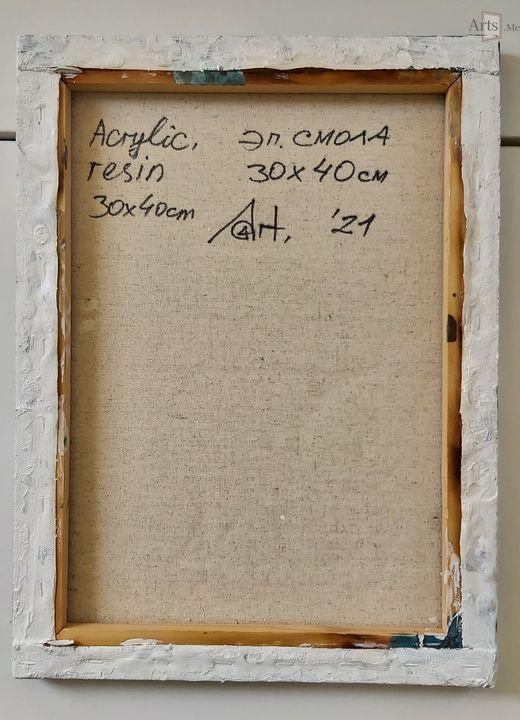 Arts.Me
Acrylic, эп. смола
resin 30х40см
30x40cm
Art, '21